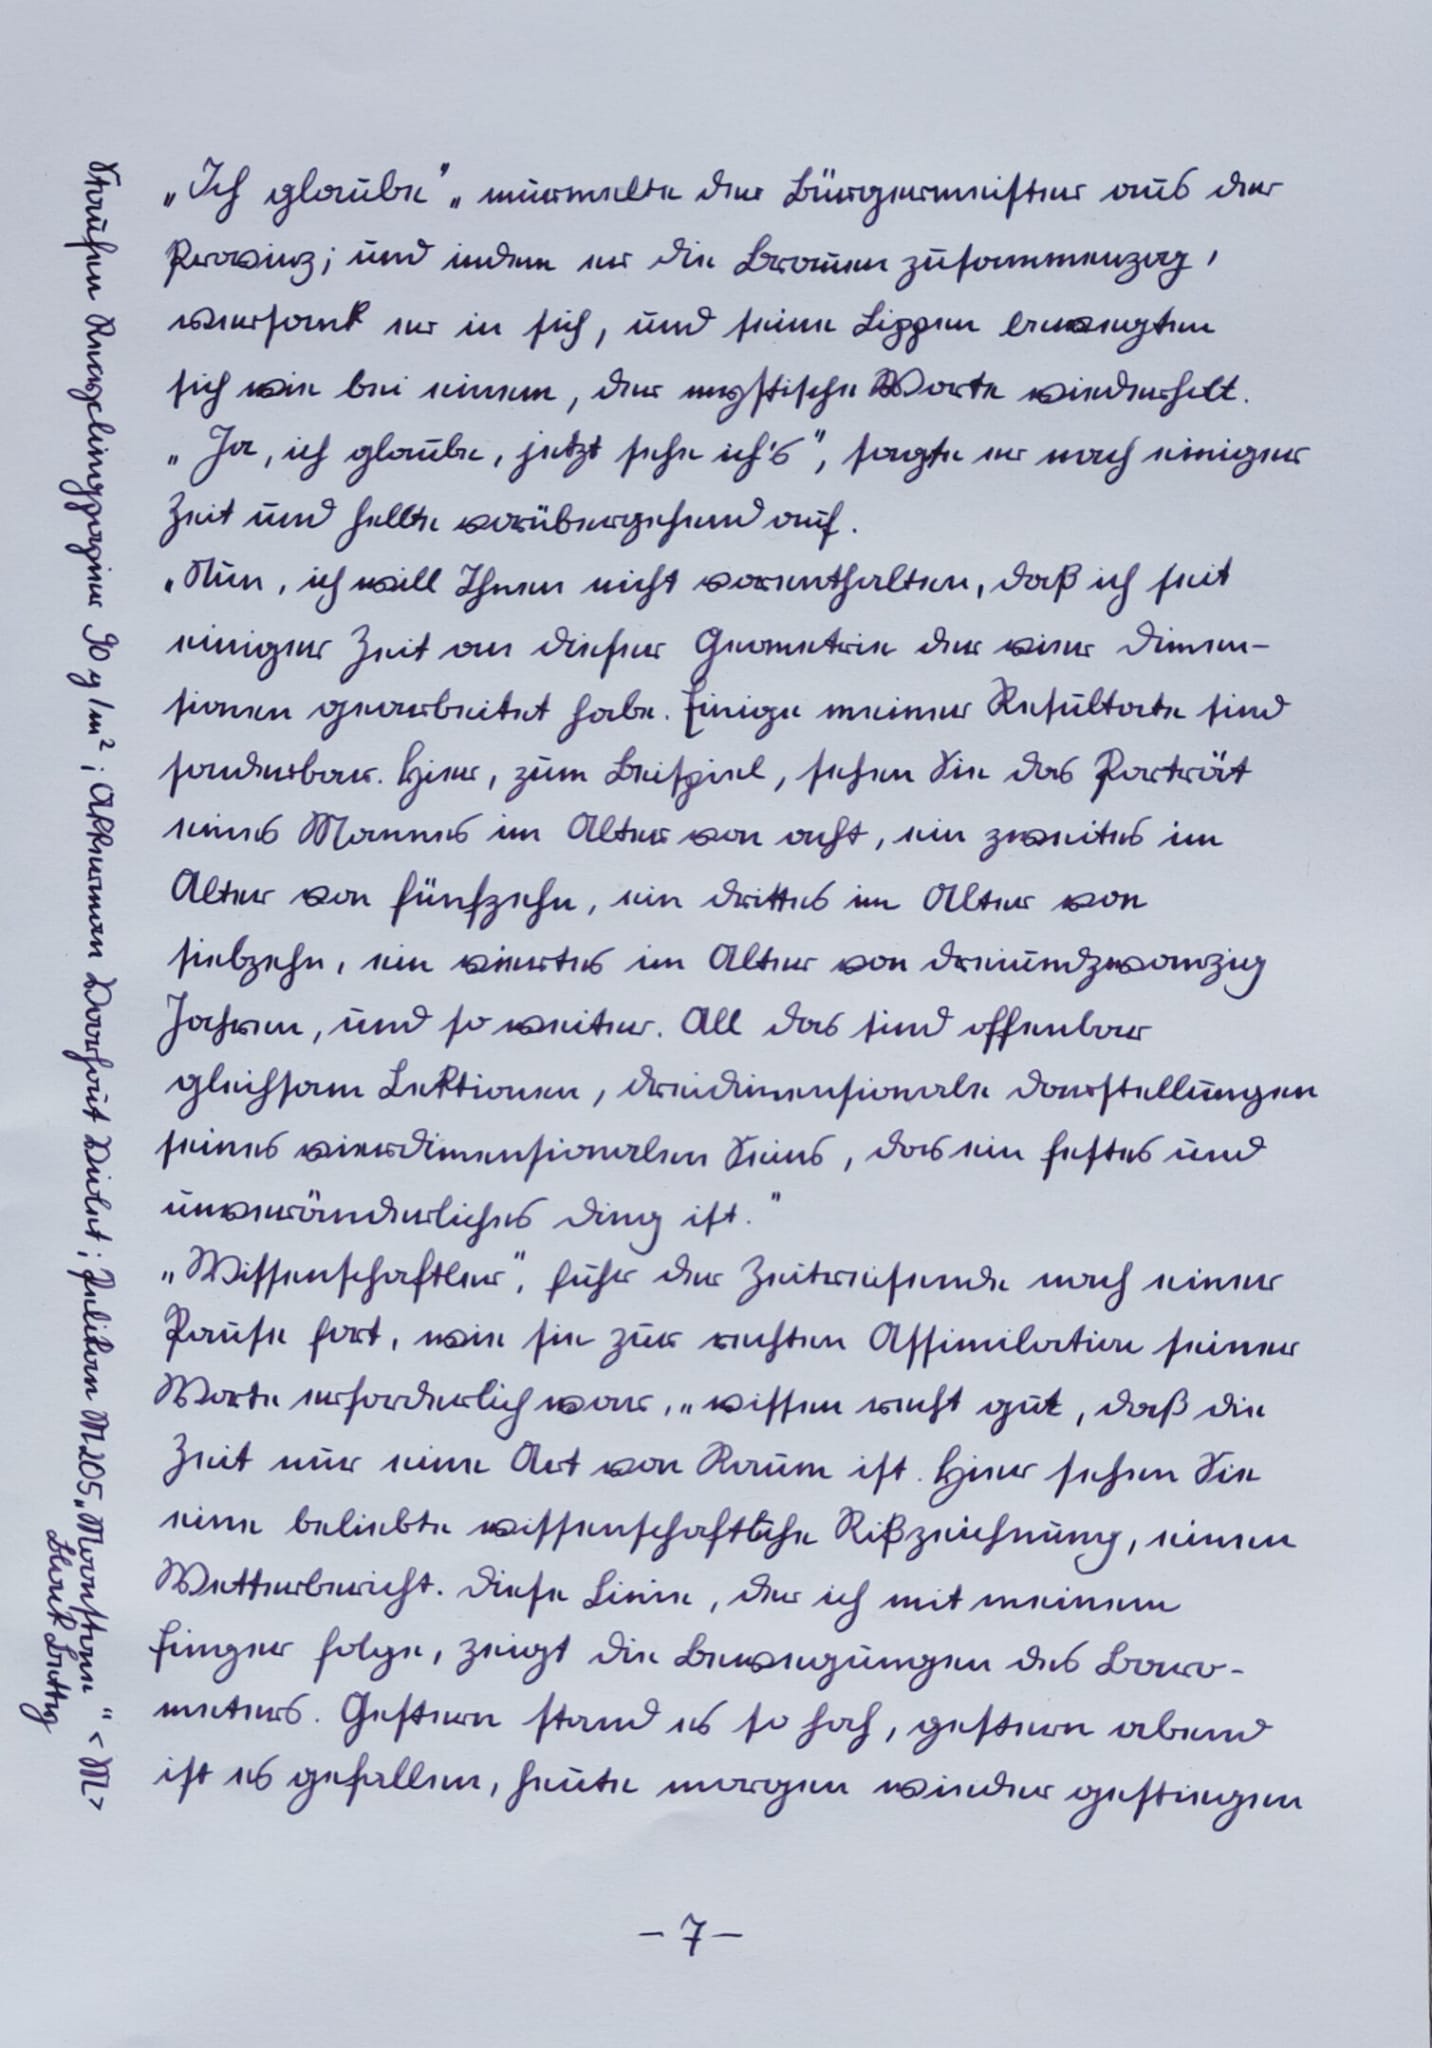 „Ich glaube", murmelte der Bürgermeister aus der
Provinz; und indem er die Brauen zusammenzog,
versank er in sich, und seine Lippen bewegten
sich wie bei einem, der mystische Worte wiederholt.
„Ja, ich glaube, jetzt sehe ich's", sagte er nach einiger
Zeit und hellte vorübergehend auf.
„Nun, ich will Ihnen nicht vorenthalten, daß ich seit
einiger Zeit an dieser Geometrie der vier Dimen-
sionen gearbeitet habe. Einige meiner Resultate sind
sonderbar. Hier, zum Beispiel, sehen Sie das Porträt
eines Mannes im Alter von acht, ein zweites im
Alter von fünfzehn, ein drittes im Alter von
siebzehn, ein viertes im Alter von dreiundzwanzig
Jahren, und so weiter. All das sind offenbar
gleichsam Lektionen, dreidimensionale Darstellungen
seines vierdimensionalen Seins, das ein festes und
unveränderliches Ding ist."
„Wissenschaftler", fuhr der Zeitreisende nach einer
Pause fort, wie sie zur rechten Assimilation seiner
Worte erforderlich war, „wissen recht gut, daß die
Zeit nur eine Art von Raum ist. Hier sehen Sie
eine beliebte wissenschaftliche Rißzeichnung, einen
Wetterbericht. Diese Linie, der ich mit meinem
Finger folge, zeigt die Bewegungen des Baro-
meters. Gestern stand es so hoch, gestern abend
ist es gefallen, heute morgen wieder gestiegen
- 7 -
Staufen Recyclingpapier 90 g/m²; Akkerman Voorhout Violet; Pelikan M205 „Moonstone" <M>